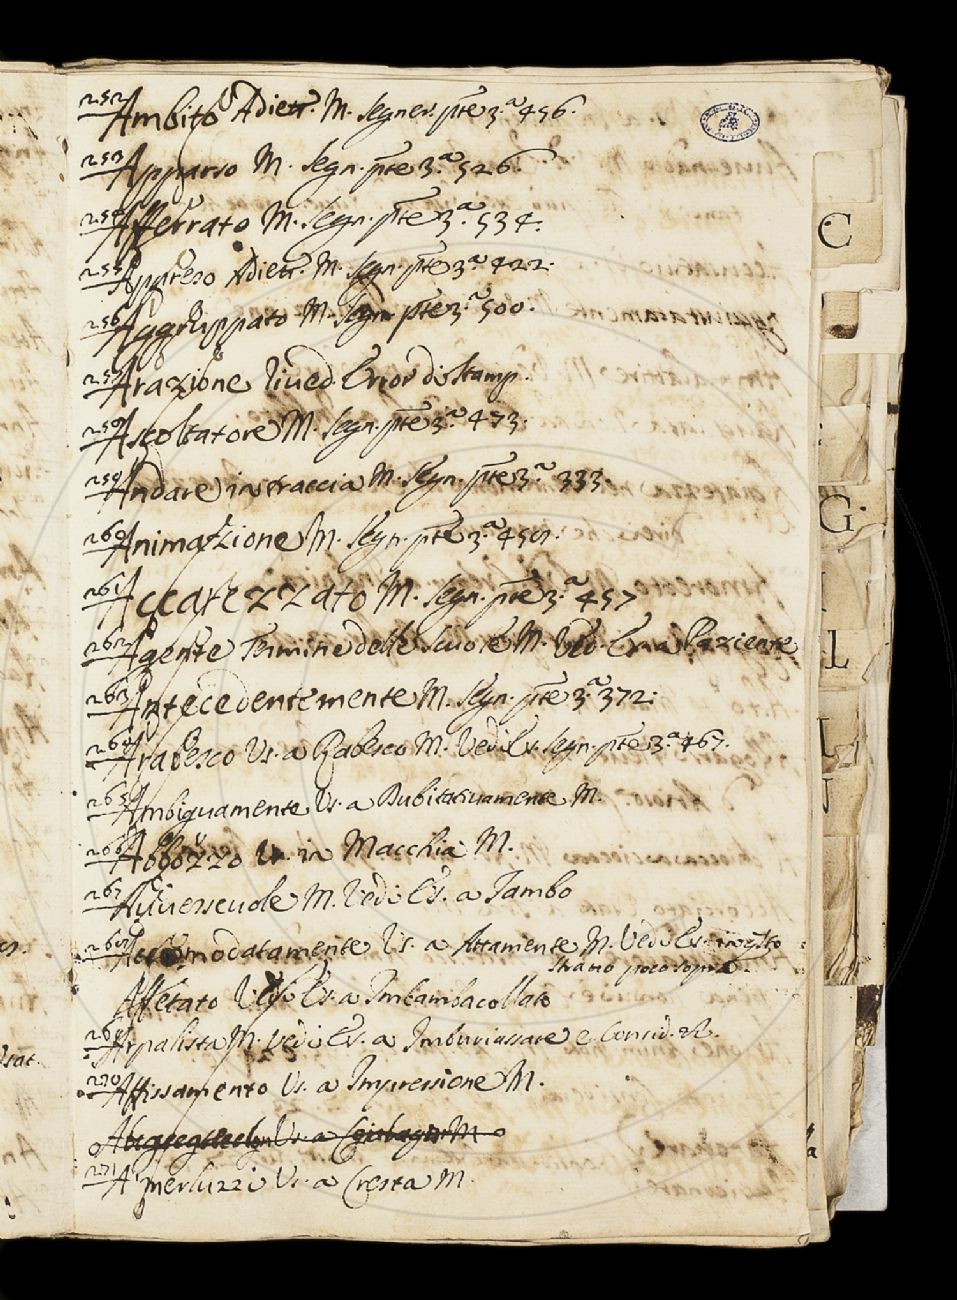 252 Ambito Adiett. M. Segner. pte 3.ª 456.
253 Apparso M. Segn. pte 3.ª 526.
254 Afferrato M. Segn. pte 3.ª 534.
255 Appreso Adiett. M. Segn. pte 3.ª 422.
256 Aggruppato M. Segn. pte 3.ª 500.
257 Arazione Error di Stamp.
258 Ascoltatore M. Segn. pte 3.ª 473.
259 Andare in traccia M. Segn. pte 3.ª 333.
260 Animazione M. Segn. pte 3.ª
261 Accarezzato M. Segn. pte 3.ª 457
262 Agente Termine delle Scuole M. Ved. Es. a Paziente
263 Antecedentemente M. Segn. pte 3.ª 372.
264 Arabesco Us. a Rabesco M. Vedi Es. Segn. pte 3.ª 467.
265 Ambiguamente Us. a Dubitativamente M.
266 Abbozzo in Macchia M.
267 M. Vedi Es. a Tambo
268 Accomodatamente Us. a Attamente M. Vedi Es. in questo
Stratto poco sopra.
Affetato Es. a Imbambacollato
269 Arpalista M. vedi Es. a Imburiassare e Consid.
270 Affissamento Us. a Impressione M.
Us. a M
271 Amerluzzi Us. a Cresta M.
C
G
L